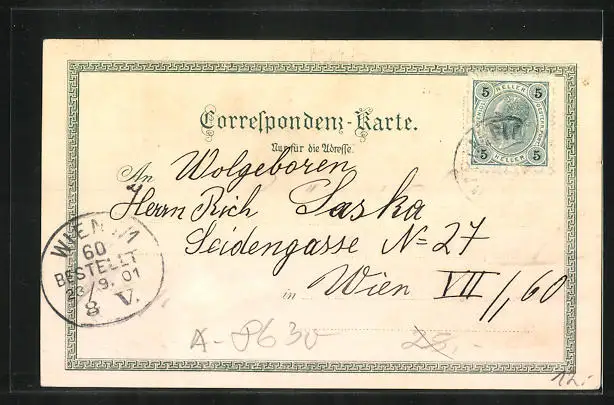 5 HELLER 5
5 HELLER 5
Correspondenz-Karte.
Nur für die Adresse.
An Wolgeboren
Herrn Rich Laska
Seidengasse N= 27
in Wien VII/1, 60
WIEN /1
60
BESTELLT
23.9.01
8 V.
A-8630
28.-
12.-